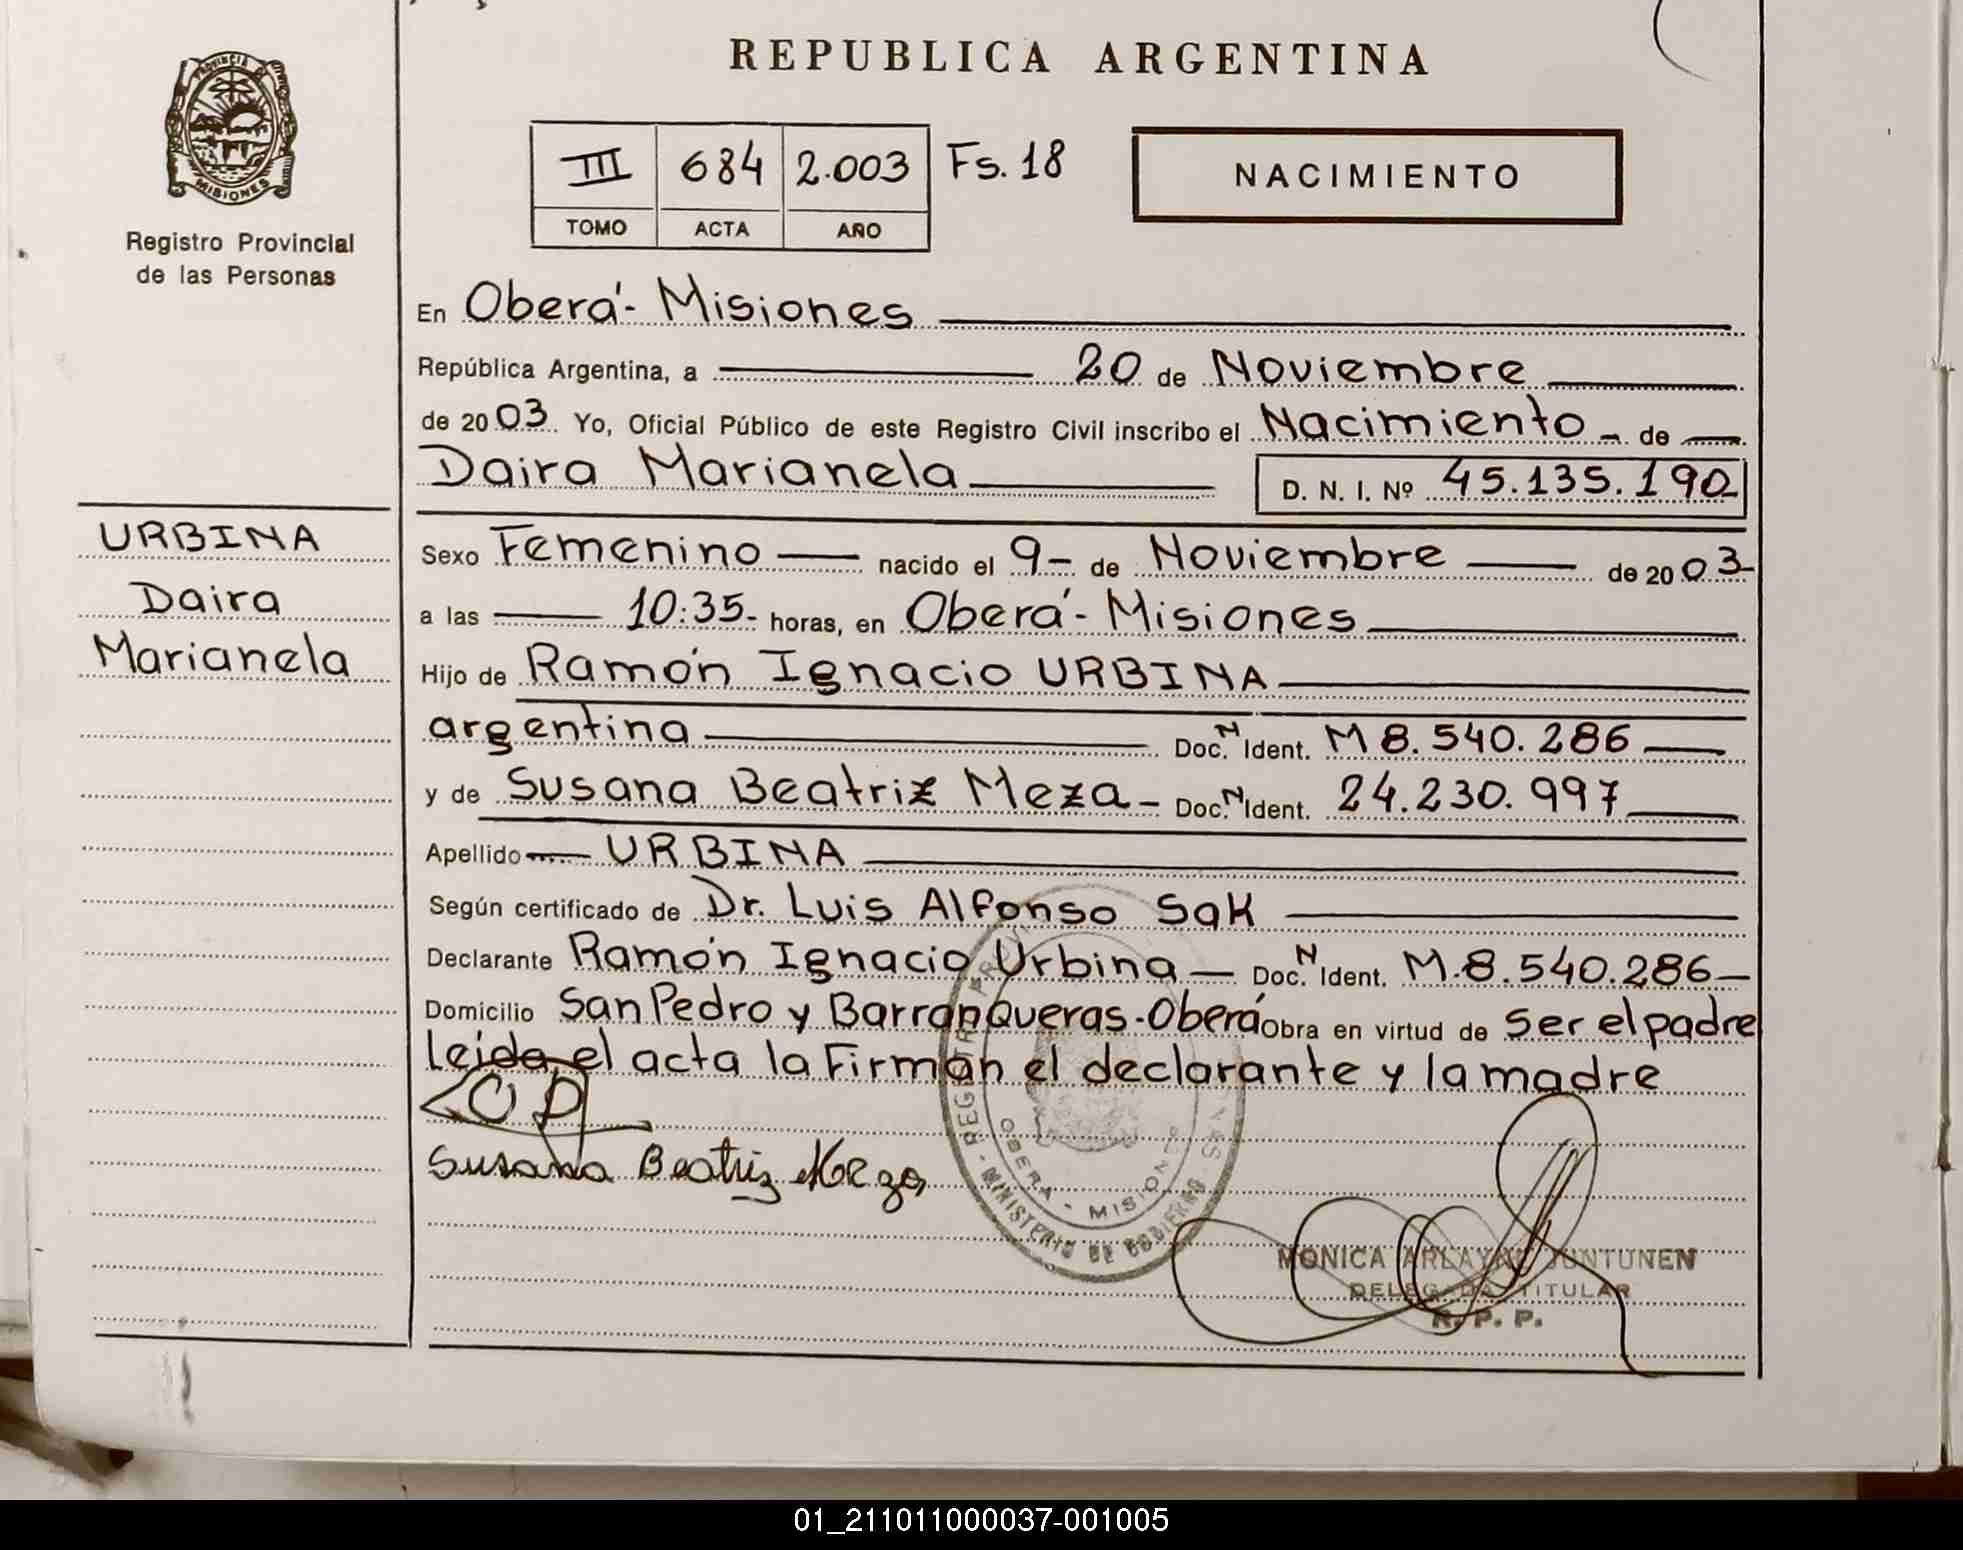 REPUBLICA ARGENTINA
PROVINCIA DE
MISIONES
Registro Provincial
de las Personas
III 684 2.003 Fs. 18
TOMO ACTA AÑO
NACIMIENTO
En Oberá - Misiones
República Argentina, a 20 de Noviembre
de 2003 Yo, Oficial Público de este Registro Civil inscribo el Nacimiento - de
Daira Marianela D. N. I. Nº 45.135.190
URBINA
Daira
Marianela
Sexo Femenino nacido el 9- de Noviembre de 2003-
a las 10:35- horas, en Oberá - Misiones
Hijo de Ramón Ignacio URBINA
argentina Doc. N Ident. M 8.540.286
y de Susana Beatriz Meza - Doc. N Ident. 24.230.997
Apellido URBINA
Según certificado de Dr. Luis Alfonso Sak
Declarante Ramón Ignacio Urbina - Doc. N Ident. M.8.540.286-
Domicilio San Pedro y Barranqueras - Oberá Obra en virtud de Ser el padre
Leida el acta la Firman el declarante y la madre
Susana Beatriz Meza
OBERA - MISIONES
MINISTERIO DE GOBIERNO
MONICA JUNTUNEN
DELEGADA TITULAR
R. P. P.
01_211011000037-001005